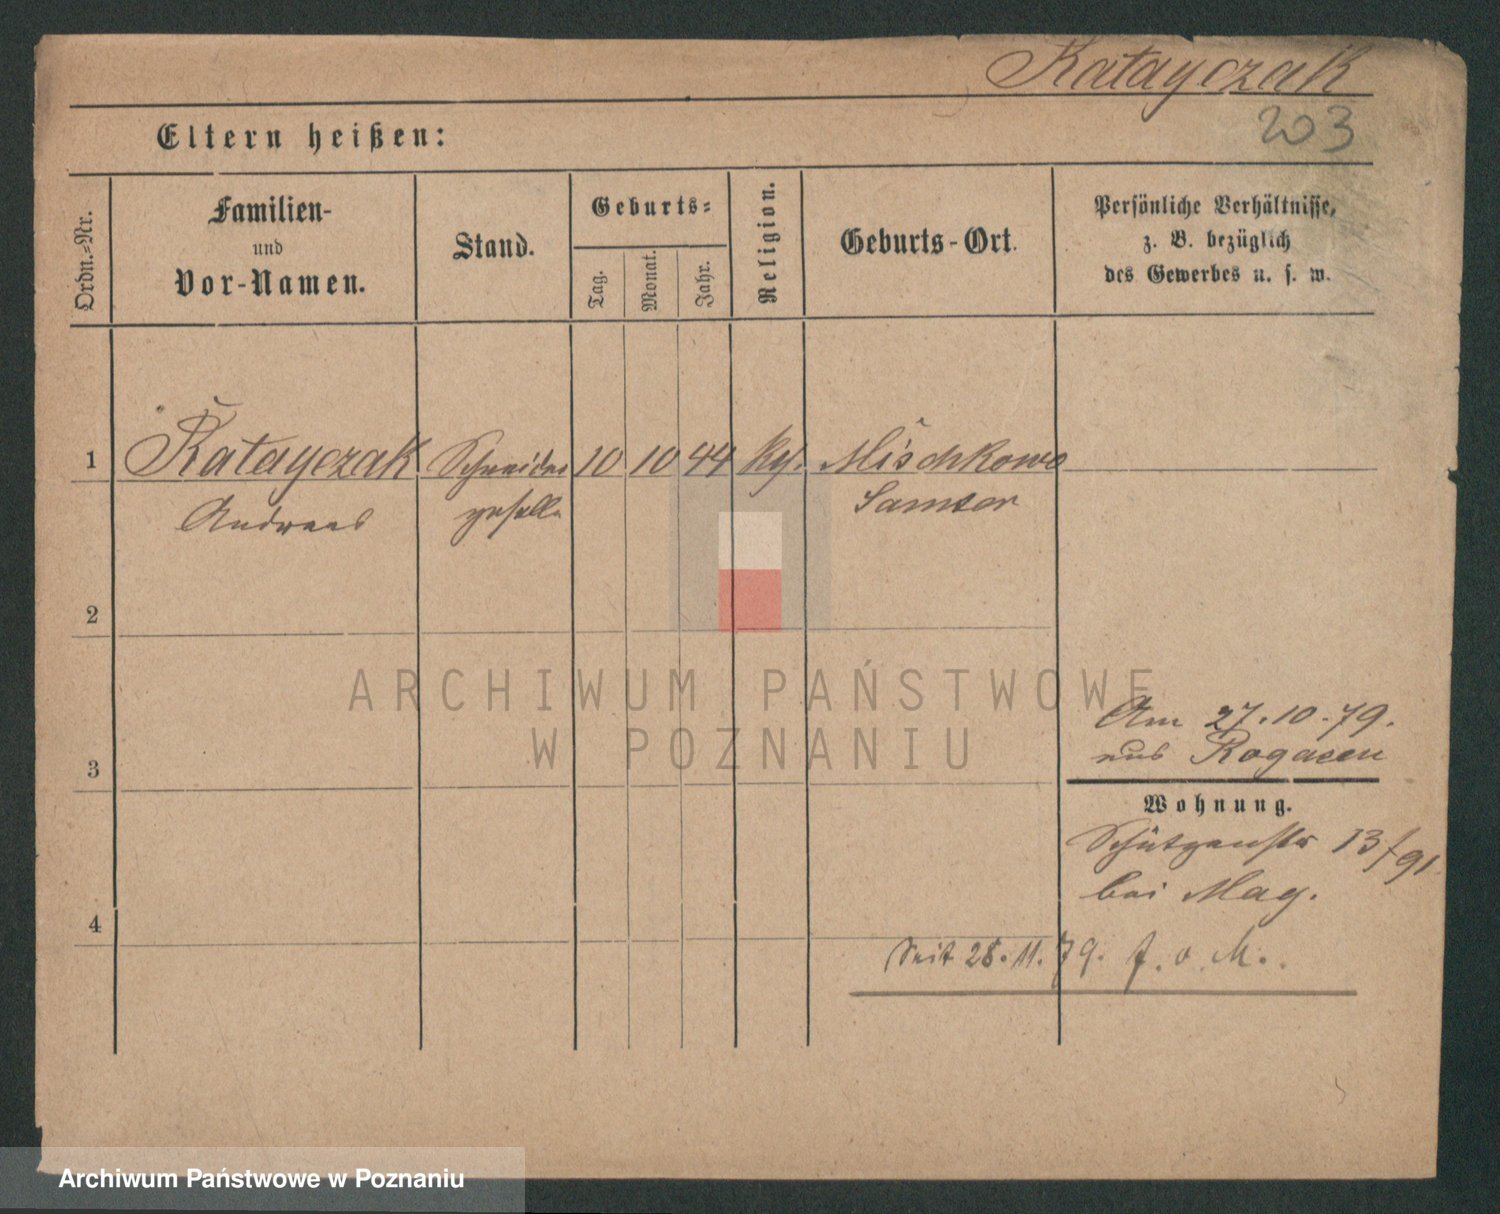 Katayczak
203
Eltern heißen:
Ordn.=Nr.
Familien-
und
Vor-Namen.
Stand.
Geburts=
Tag.
Monat.
Jahr.
Religion.
Geburts-Ort.
Persönliche Verhältnisse,
z. B. bezüglich
des Gewerbes u. s. w.
1 Katayczak Schneider 10 10 44 Mischkowo
Andreas geselle Samter
2
3
4
Am 27.10.79.
aus Rogasen
Wohnung.
Schützenstr 13/91
bei Mag.
Seit 28.11.79. f. o. M.
ARCHIWUM PAŃSTWOWE
W POZNANIU
Archiwum Państwowe w Poznaniu